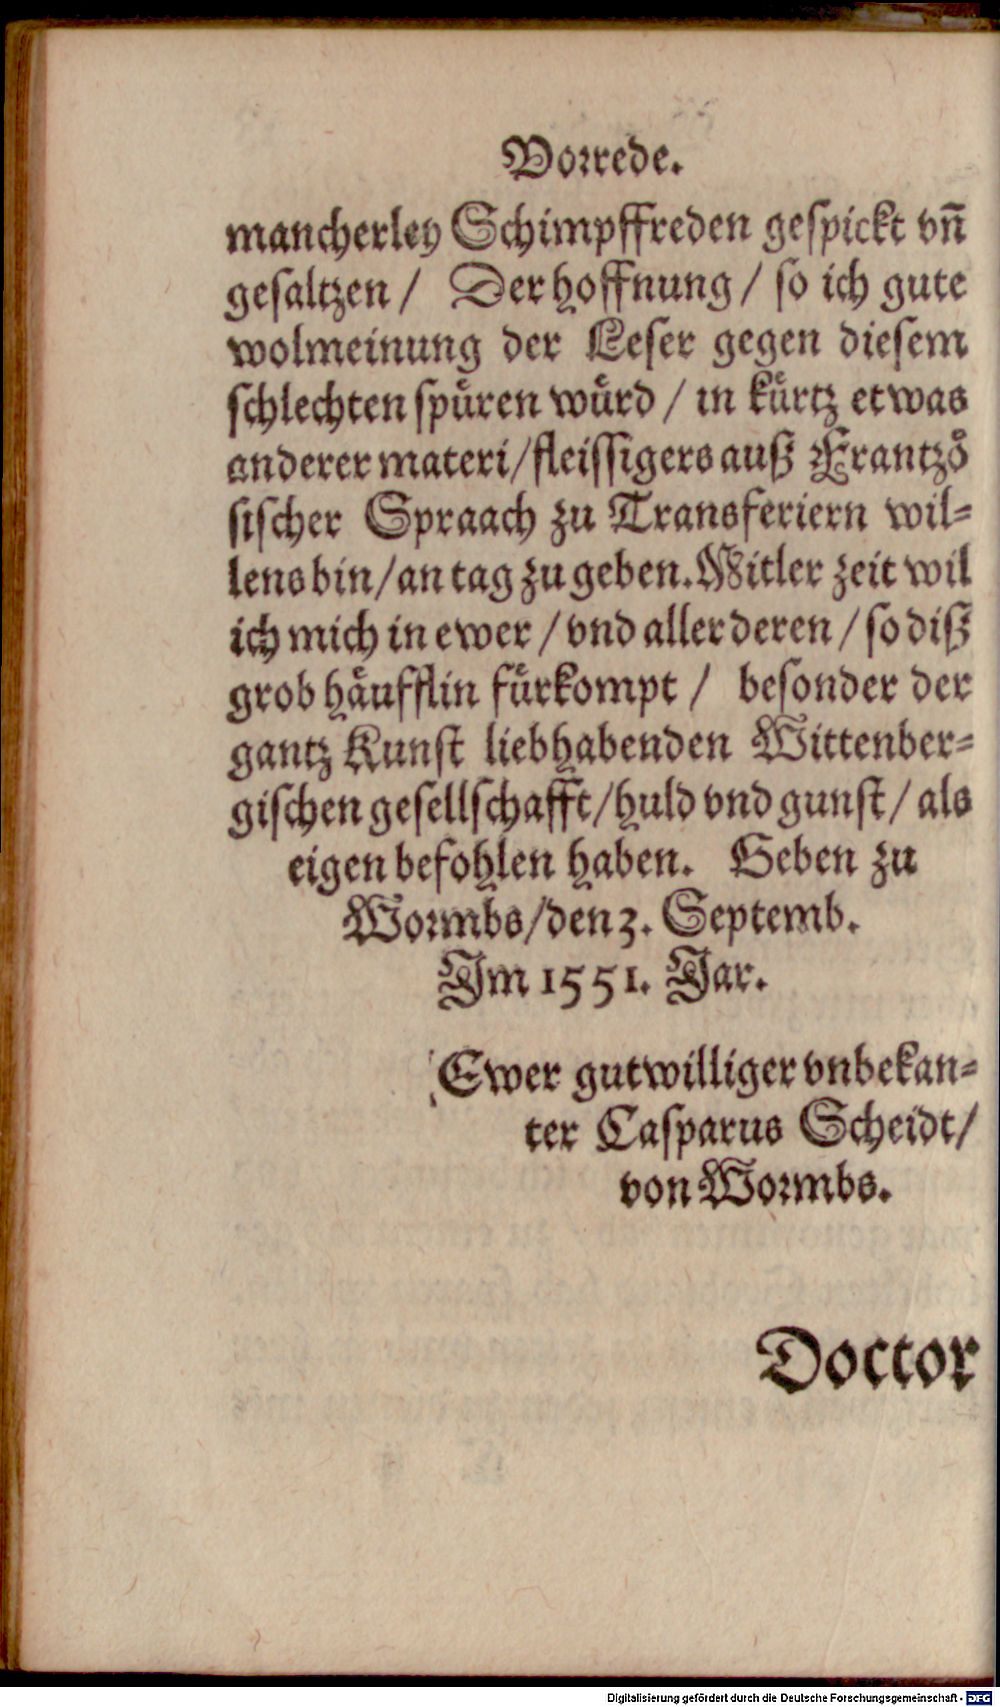 Vorrede.
mancherley Schimpffreden gespickt vñ
gesaltzen / Der hoffnung / so ich gute
wolmeinung der Leser gegen diesem
schlechten spuͤren wuͤrd / in kuͤrtz etwas
anderer materi / fleissigers auß Frantzoͤ
sischer Spraach zu Transferiern wil-
lens bin / an tag zu geben. Mitler zeit wil
ich mich in ewer / vnd aller deren / so diß
grob haͤufflin fuͤrkompt / besonder der
gantz Kunst liebhabenden Wittenber-
gischen gesellschafft / huld vnd gunst / als
eigen befohlen haben. Geben zu
Wormbs / den 3. Septemb.
Im 1551. Jar.
Ewer gutwilliger vnbekan-
ter Casparus Scheidt /
von Wormbs.
Doctor
Digitalisierung gefördert durch die Deutsche Forschungsgemeinschaft - DFG